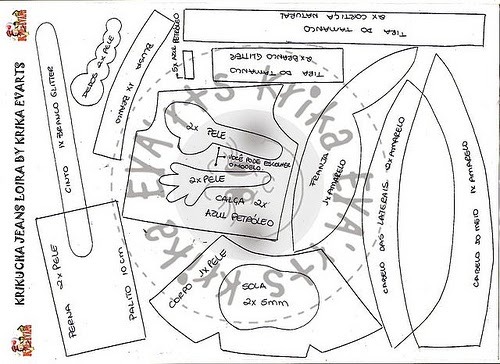 KRIKUCHA JEANS LOIRA BY KRIKA EVARTS
KriKa
KriKa
CINTO 1X BRANCO GLITTER
DEDOS 2X PELE
BLUSA
1X BRANCO
5X AZUL PETRÓLEO
TIRA DO TAMANCO
2X CORTIÇA NATURAL
TIRA DO TAMANCO
2X BRANCO GLITTER
2X PELE
VOCÊ PODE ESCOLHER
O MODELO.
2X PELE
CALÇA 2X
AZUL PETRÓLEO
FRANJA
1X AMARELO
CABELO DAS LATERAIS 2X AMARELO
CABELO DO MEIO 1X AMARELO
PERNA 2X PELE
PALITO 10cm
CORPO 1X PELE
SOLA
2X 5mm
Krika EVA'rts Krika EVA'rts